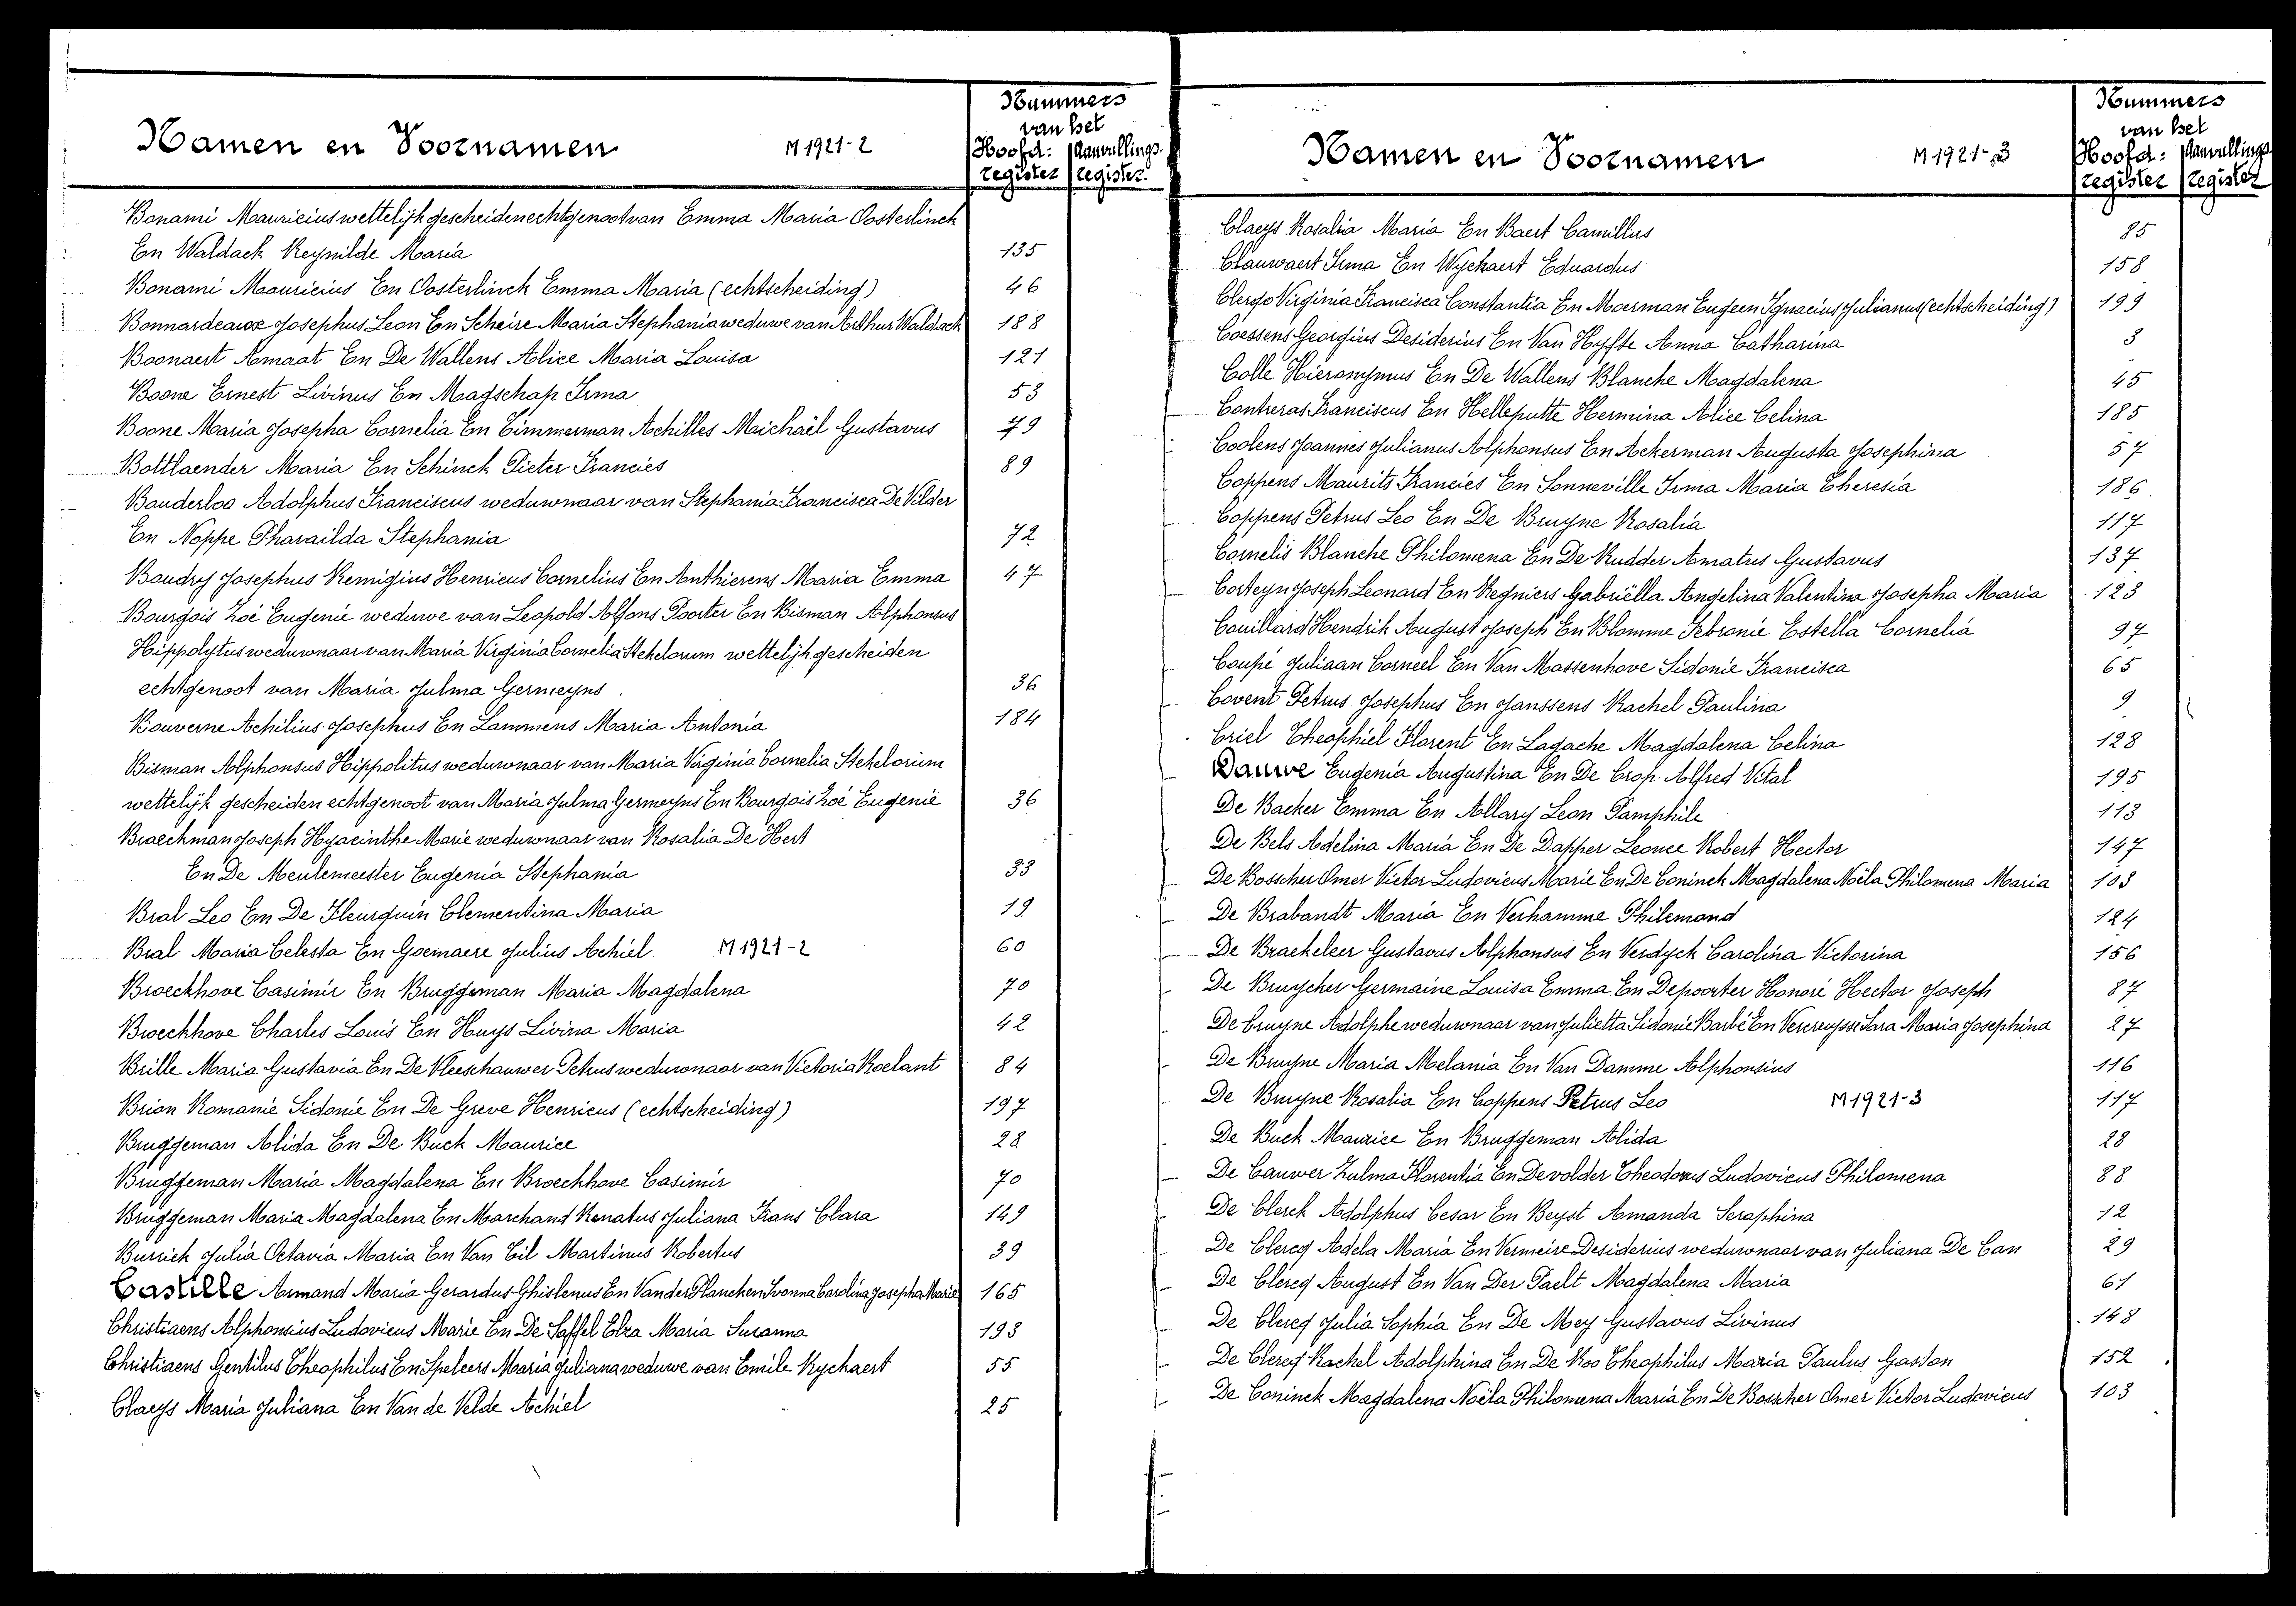 Namen en Voornamen M 1921-2
Nummers
van het
Hoofd: Aanvullings-
register register.
Bonami Mauricius wettelijk gescheiden echtgenoot van Emma Maria Oosterlinck
En Waldack Reynilde Maria 135
Bonami Mauricius En Oosterlinck Emma Maria (echtscheiding) 46
Bonnardeaux Josephus Leon En Scheire Maria Stephania weduwe van Arthur Waldack 188
Boonaert Amaat En De Wallens Alice Maria Louisa 121
Boone Ernest Livinus En Magschap Irma 53
Boone Maria Josepha Cornelia En Timmerman Achilles Maichaël Gustavus 79
Bottlaender Maria En Schinck Pieter Francies 89
Bouderloo Adolphus Franciscus weduwnaar van Stephania Francisca De Vilder
En Noppe Pharaïlda Stephania 72
Boudry Josephus Remigius Henricus Cornelius En Anthierens Maria Emma 47
Bourgois Zoé Eugenie weduwe van Leopold Alfons Poorter En Bisman Alphonsus
Hippolytus weduwnaar van Maria Virginia Cornelia Stekelorum wettelijk gescheiden
echtgenoot van Maria Julma Germeyns. 36
Bouverne Achilius Josephus En Lammens Maria Antonia 184
Bisman Alphonsus Hippolitus weduwnaar van Maria Virginia Cornelia Stekelorium
wettelijk gescheiden echtgenoot van Maria Julma Germeyns En Bourgois Zoé Eugenie 36
Braeckman Joseph Hyacinthe Marie weduwnaar van Rosalia De Hert
En De Meulemeester Eugenia Stephania 33
Bral Leo En De Fleurquin Clementina Maria 19
Bral Maria Celesta En Goemaere Julius Achiel M 1921-2 60
Broeckhove Casimir En Bruggeman Maria Magdalena 70
Broeckhove Charles Louis En Huys Livina Maria 42
Brille Maria Gustavia En De Vleeschauwer Petrus weduwnaar van Victoria Roelant 84
Brion Romanie Sidonie En De Greve Henricus (echtscheiding) 197
Bruggeman Alida En De Buck Maurice 28
Bruggeman Maria Magdalena En Broeckhove Casimir 70
Bruggeman Maria Magdalena En Marchand Renatus Juliana Frans Clara 149
Burrick Julia Octavia Maria En Van Eil Martinus Robertus 39
Castille Armand Maria Gerardus Ghislenus En Vander Plancken Ivonna Carolina Josepha Marie 165
Christiaens Alphonsius Ludovicus Marie En De Saffel Elza Maria Suzanna 193
Christiaens Gentilus Theophilus En Speleers Maria Juliana weduwe van Emile Rychaert 55
Claeys Maria Juliana En Van de Velde Achiel 25
Namen en Voornamen M 1921-3
Nummers
van het
Hoofd: Aanvullings-
register register
Claeys Rosalia Maria En Baert Camillus 85
Clauwaert Irma En Wyckaert Eduardus 158
Clergo Virginia Francisca Constantia En Moerman Eugeen Ignacius Julianus (echtscheiding) 199
Coessens Georgius Desiderius En Van Hyfte Anna Catharina 3
Colle Hieronymus En De Wallens Blanche Magdalena 45
Contreras Franciscus En Helleputte Hermina Alice Celina 185
Coolens Joannes Julianus Alphonsus En Ackerman Augusta Josephina 57
Coppens Maurits Francies En Sonneville Irma Maria Theresia 186
Coppens Petrus Leo En De Bruyne Rosalia 117
Cornelis Blanche Philomena En De Rudder Amatus Gustavus 137
Corteyn Joseph Leonard En Regniers Gabriëlla Angelina Valentina Josepha Maria 123
Couillard Hendrik August Joseph En Blomme Febronie Estella Cornelia 97
Coupé Juliaan Corneel En Van Massenhove Sidonie Francisca 65
Covent Petrus Josephus En Janssens Rachel Paulina 9
Criel Theophiel Florent En Lagache Magdalena Celina 128
Dauwe Eugenia Augustina En De Crop Alfred Vital 195
De Backer Emma En Allary Leon Pamphile 113
De Bels Adelina Maria En De Dapper Leonce Robert Hector 147
De Bosscher Omer Victor Ludovicus Marie En De Coninck Magdalena Noëla Philomena Maria 103
De Brabandt Maria En Verhamme Philemond 124
De Braekeleer Gustavus Alphonsus En Verdyck Carolina Victorina 156
De Bruycher Germaine Louisa Emma En Depoorter Honoré Hector Joseph 87
De bruyne Adolphe weduwnaar van Julietta Sidonie Barbé En Vercruysse Sara Maria Josephina 27
De Bruyne Maria Melania En Van Damme Alphonsius 116
De Bruyne Rosalia En Coppens Petrus Leo M 1921-3 117
De Buck Maurice En Bruggeman Alida 28
De Cauwer Zulma Florentia En Devolder Theodorus Ludovicus Philomena 88
De Clerck Adolphus Cesar En Beyst Amanda Seraphina 12
De Clercq Adela Maria En Vermeire Desiderius weduwnaar van Juliana De Can 29
De Clercq August En Van Der Paelt Magdalena Maria 61
De Clercq Julia Sophia En De Mey Gustavus Livinus 148
De Clercq Rachel Adolphina En De Roo Theophilus Maria Paulus Gaston 152
De Coninck Magdalena Noëla Philomena Maria En De Bosscher Omer Victor Ludovicus 103